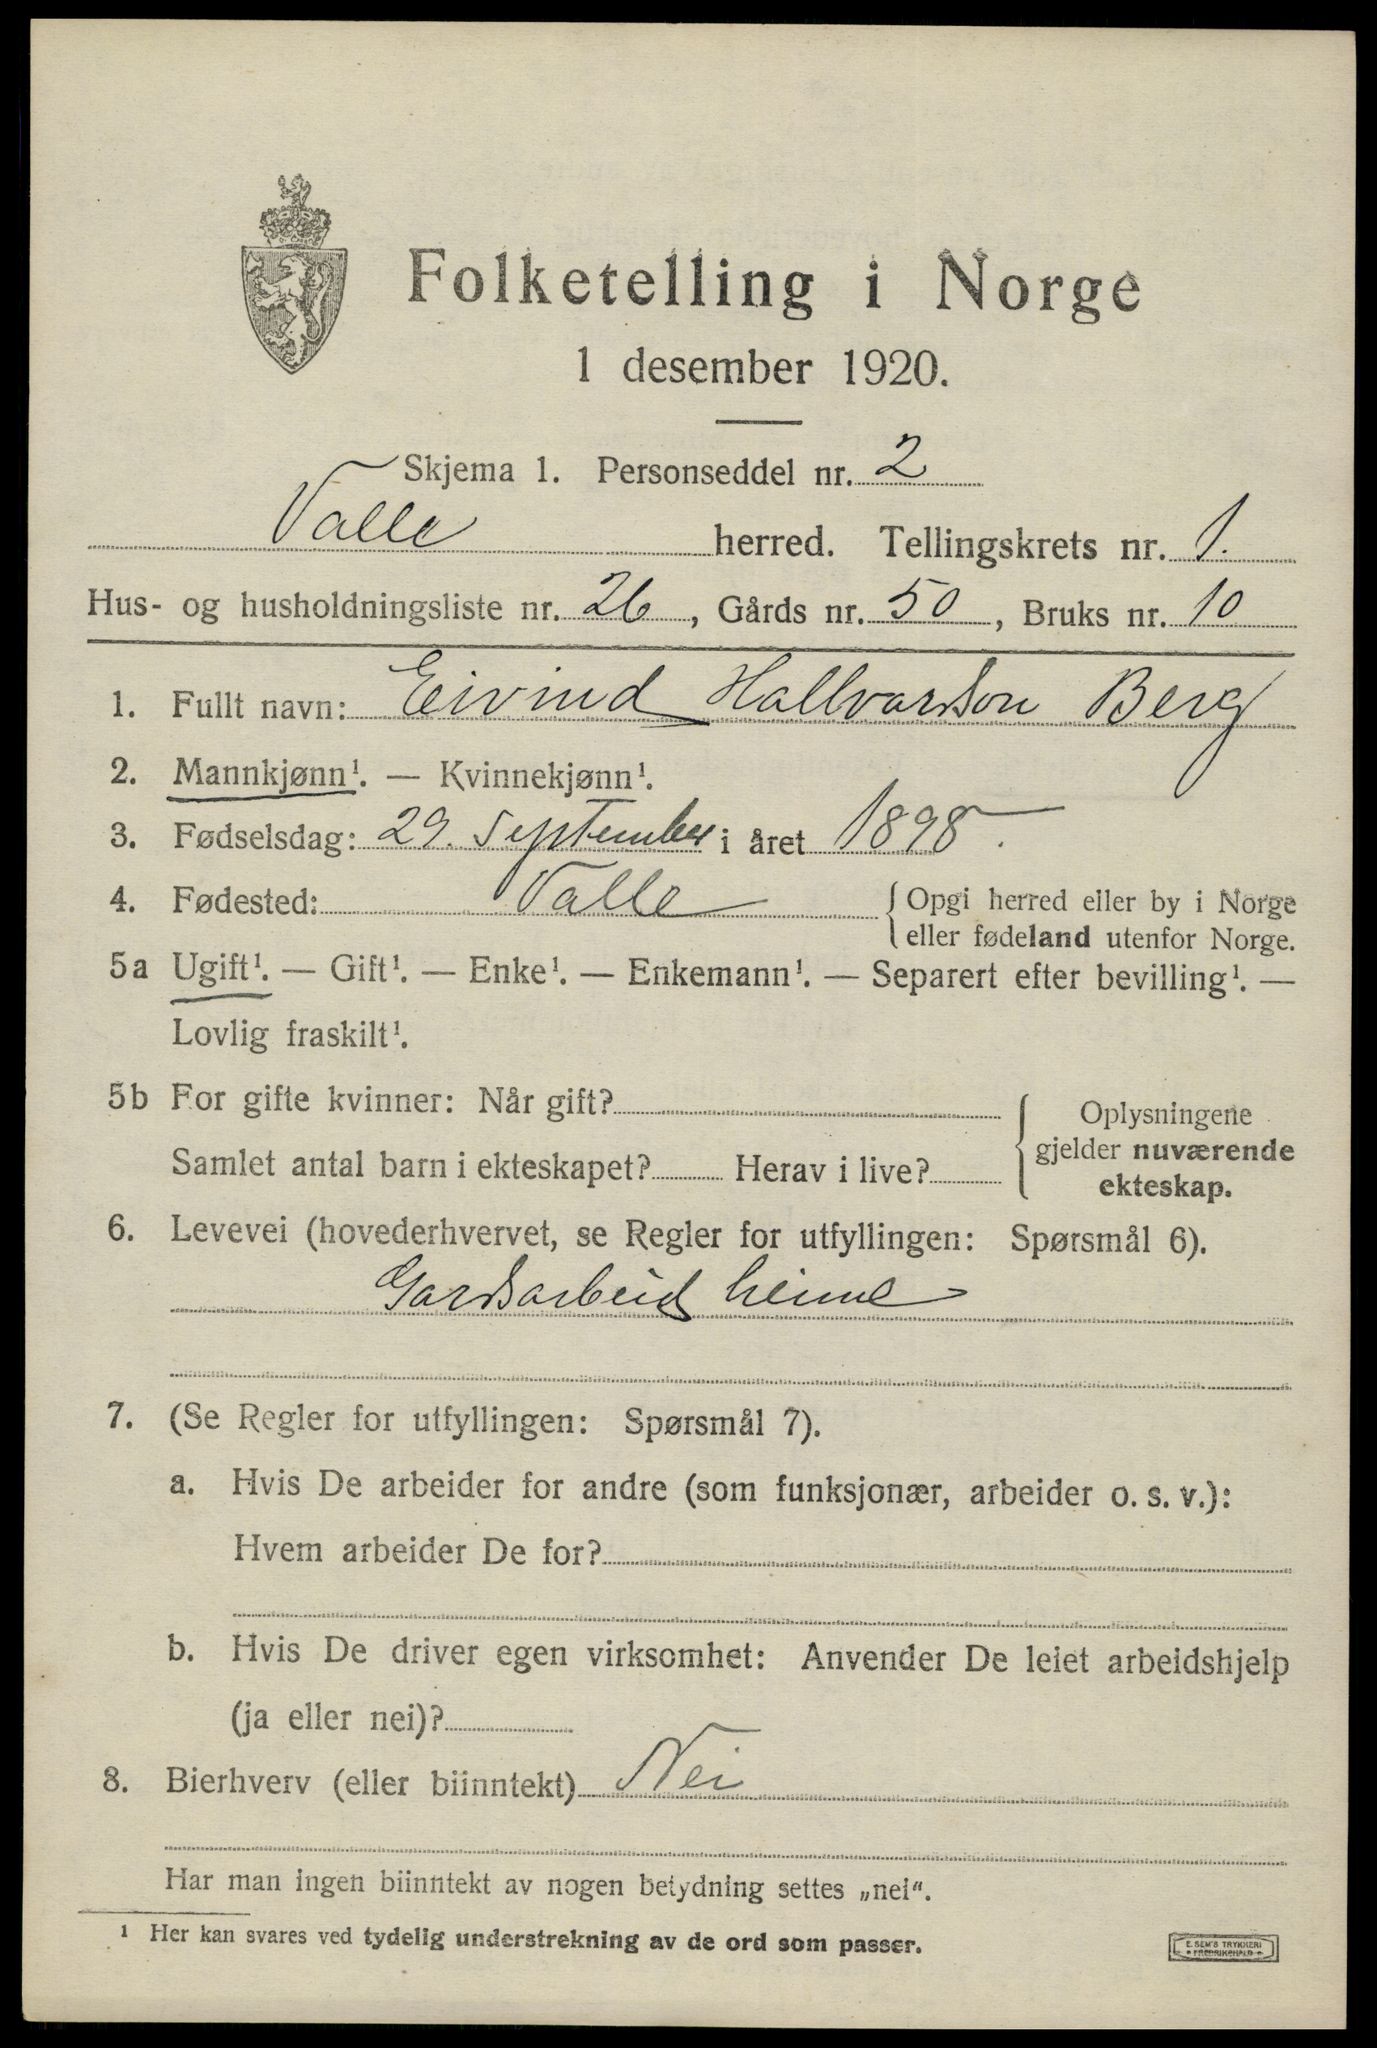 Folketelling i Norge
1 desember 1920.
Skjema 1. Personseddel nr. 2
Valle herred. Tellingskrets nr. 1.
Hus- og husholdningsliste nr. 26, Gårds nr. 50, Bruks nr. 10
1. Fullt navn: Eivind Hallvardson Berg
2. Mannkjønn¹. — Kvinnekjønn¹.
3. Fødselsdag: 29. september i året 1898.
4. Fødested: Valle {Opgi herred eller by i Norge
eller fødeland utenfor Norge.
5a Ugift¹. — Gift¹. — Enke¹. — Enkemann¹. — Separert efter bevilling¹. —
Lovlig fraskilt¹.
5b For gifte kvinner: Når gift?
Samlet antal barn i ekteskapet? Herav i live?
{Oplysningene
gjelder nuværende
ekteskap.
6. Levevei (hovederhvervet, se Regler for utfyllingen: Spørsmål 6).
Gardsarbeid heime
7. (Se Regler for utfyllingen: Spørsmål 7).
a. Hvis De arbeider for andre (som funksjonær, arbeider o. s. v.):
Hvem arbeider De for?
b. Hvis De driver egen virksomhet: Anvender De leiet arbeidshjelp
(ja eller nei)?
8. Bierhverv (eller biinntekt) Nei
Har man ingen biinntekt av nogen betydning settes „nei“.
¹ Her kan svares ved tydelig understrekning av de ord som passer.
E. SEM'S TRYKKERI
FREDRIKSHALD